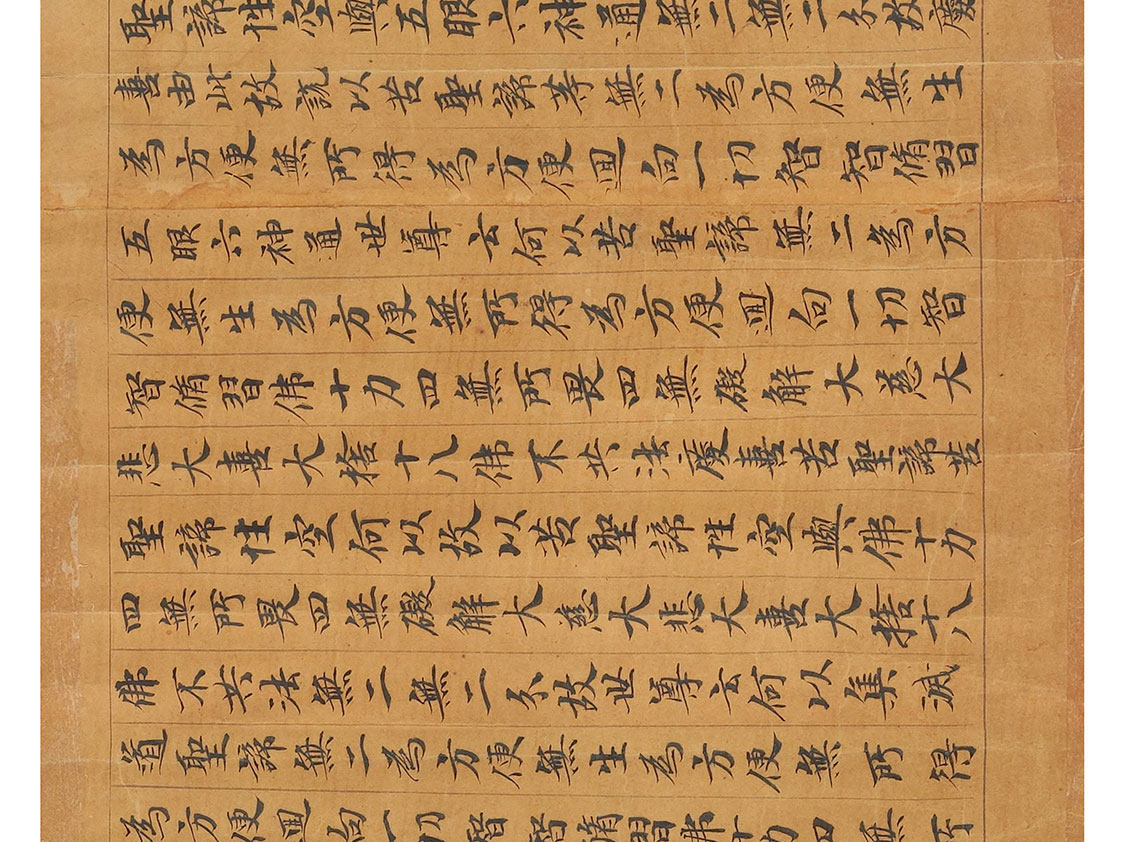 聖諦性空與五眼六神通無二無二分故慶
喜由此故說以苦聖諦等無二為方便無生
為方便無所得為方便迴向一切智智脩習
五眼六神通世尊云何以苦聖諦無二為方
便無生為方便無所得為方便迴向一切智
智脩習佛十力四無所畏四無礙解大慈大
悲大喜大捨十八佛不共法慶喜苦聖諦苦
聖諦性空何以故以苦聖諦性空與佛十力
四無所畏四無礙解大慈大悲大喜大捨十八
佛不共法無二無二分故世尊云何以集滅
道聖諦無二為方便無生為方便無所得
為方便迴向一切智智脩習佛十力四無所